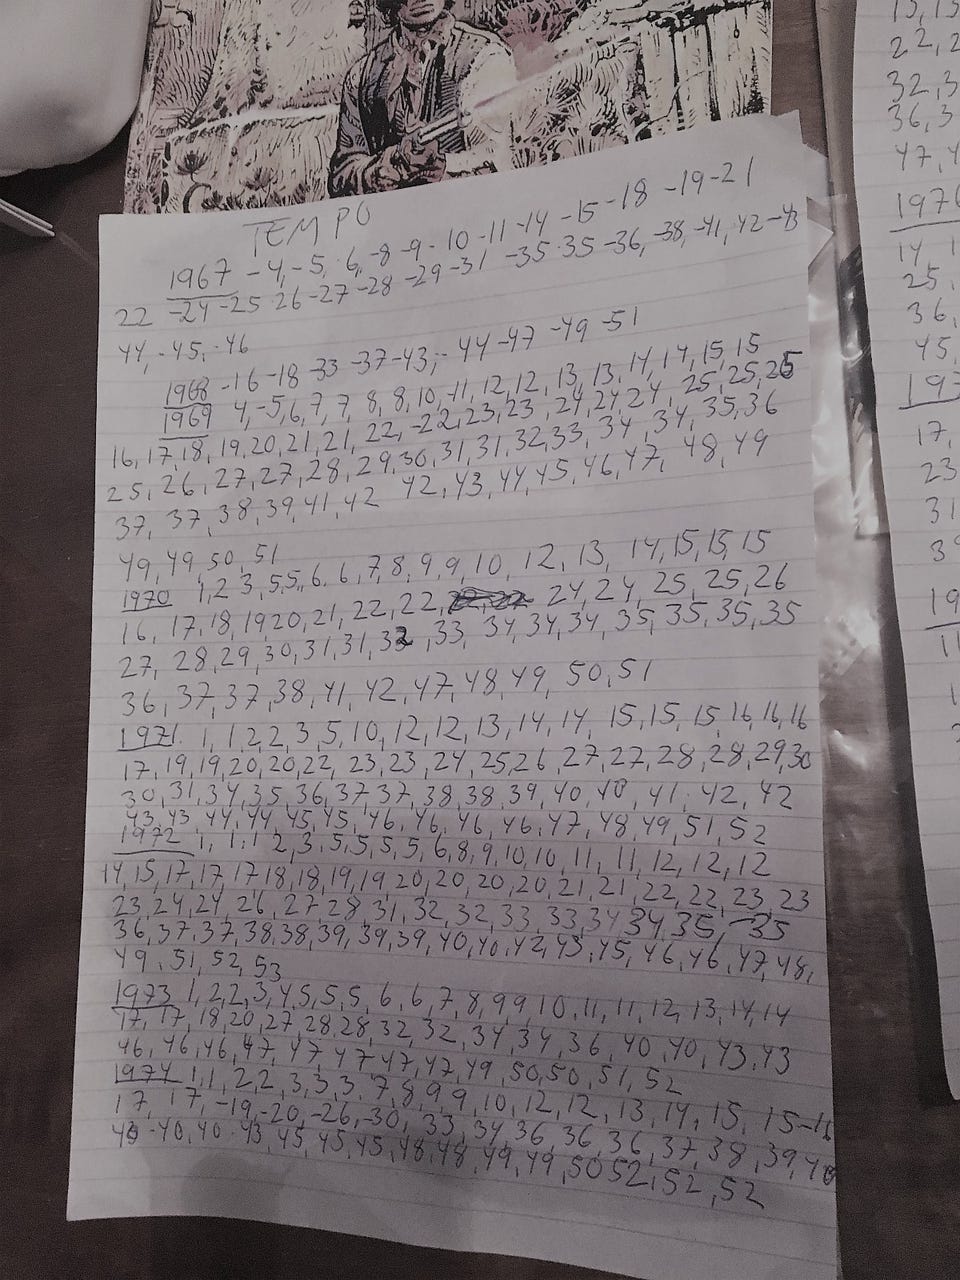 TEMPO
1967 -4,-5, 6,-8 -9- 10 -11 -14 -15 -18 -19-21
22 -24 -25 26 -27 -28 -29 -31 -35 35 -36, -38, -41, 42 -43
44, -45, -46
1968 -16 -18 -33 -37-43,- 44 -47 -49 -51
1969 4,-5,6,7,7, 8,8,10,-11,12,12, 13,13, 14,14,15,15
16, 17,18, 19,20,21,21, 22, -22,23,23, 24,24,24, 25,25,25
25, 26, 27,27,28,29,30,31,31,32,33, 34,34, 35,36
37, 37, 38,39,41,42 42,43,44,45,46,47, 48,49
49,49,50,51
1970 1,2 3,5,5, 6,6,7,8,9,9,10, 12,13, 14,15,15,15
16, 17,18,1920,21,22,22, 24,24,25,25,26
27, 28,29,30,31,31,32,33, 34,34,34, 35,35,35,35
36,37,37,38,41,42,47,48,49, 50,51
1971. 1,1,22,3,5,10,12,12,13,14,14, 15,15,15 16,16,16
17,19,19,20,20,22, 23,23,24,25,26,27,27,28,28,29,30
30,31,34,35,36,37 37,38,38,39,40,40,41,42,42
43,43,44,44,45,45,46,46,46,46,47,48,49,51,52
1972 1, 1,1 2,3,5,5,5,5,6,8,9,10,10,11,11,12,12,12
14,15,17,17,17 18,18,19,19 20,20,20,20,21,21,22,22,23,23
23,24,24,26,27,28,31,32,32,33,33,34 34,35, 35
36,37,37,38,38,39,39,39,40,40,42,43,45,46,46,47,48,
49,51,52,53
1973 1,2,2,3,4,5,5,5,6,6,7,8,99,10,11,11,12,13,14,14
17,17,18,20,27,28,28,32,32,34,34,36,40,40,43,43
46,46,46,47,47,47 47,47,49,50,50,51,52
1974 1,1,2,2,3,3,3,7,8,9 9,10,12,12,13,14,15,15-16
17, 17,-19,-20,-26,-30,33,34,36,36,36,37,38,39,40
40 -40,40 43,45,45,45,48,48,49,49,50 52,52,52
22, 2
32, 3
36, 3
47, 4
25,
36,
45,
17,
23
31